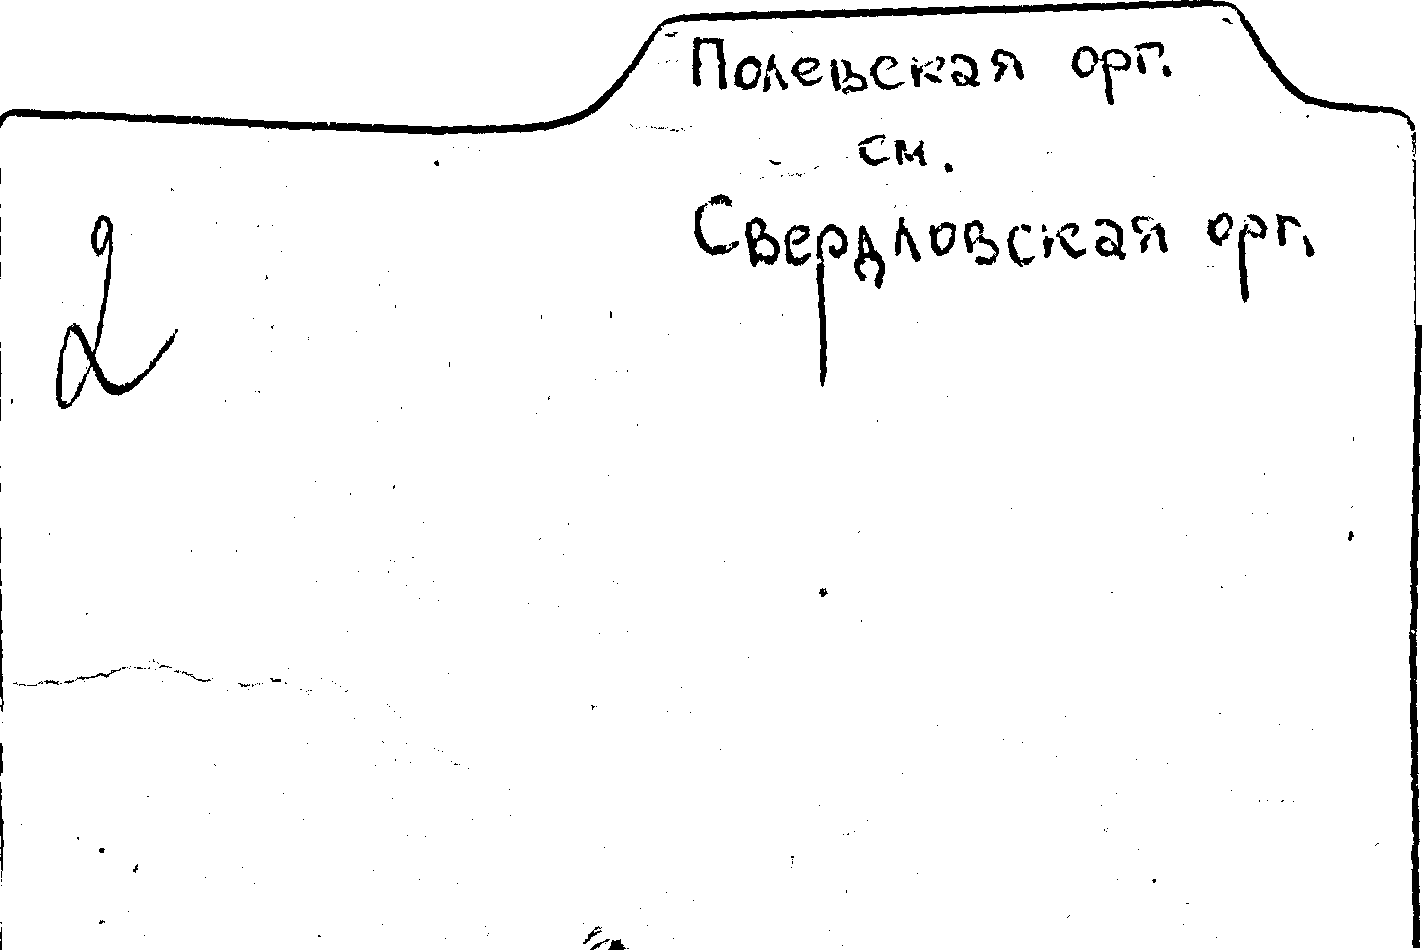 Полевская орг.
см.
Свердловская орг.
2